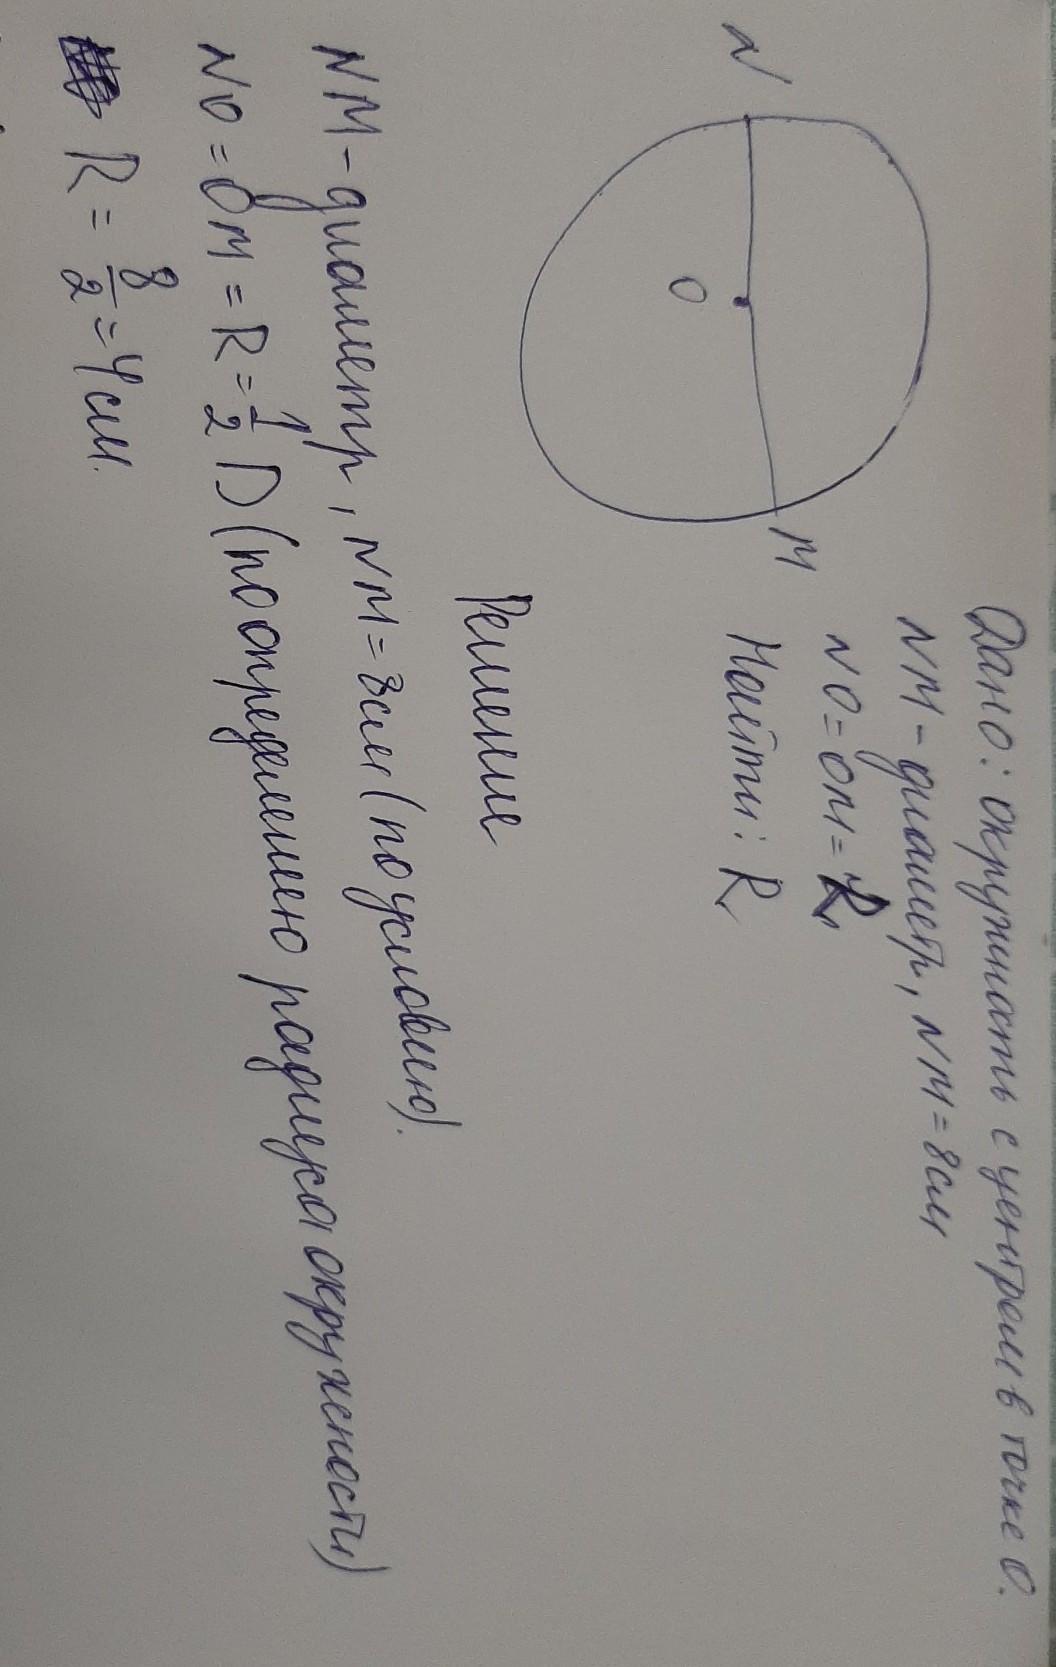 Дано: окружность с центром в точке О.
NM - диаметр, NM = 8см
NO = OM = R
Найти: R
N
O
M
Решение
NM - диаметр, NM = 8см (по условию).
NO = OM = R = 1/2 D (по определению радиуса окружности)
R = 8/2 = 4см.